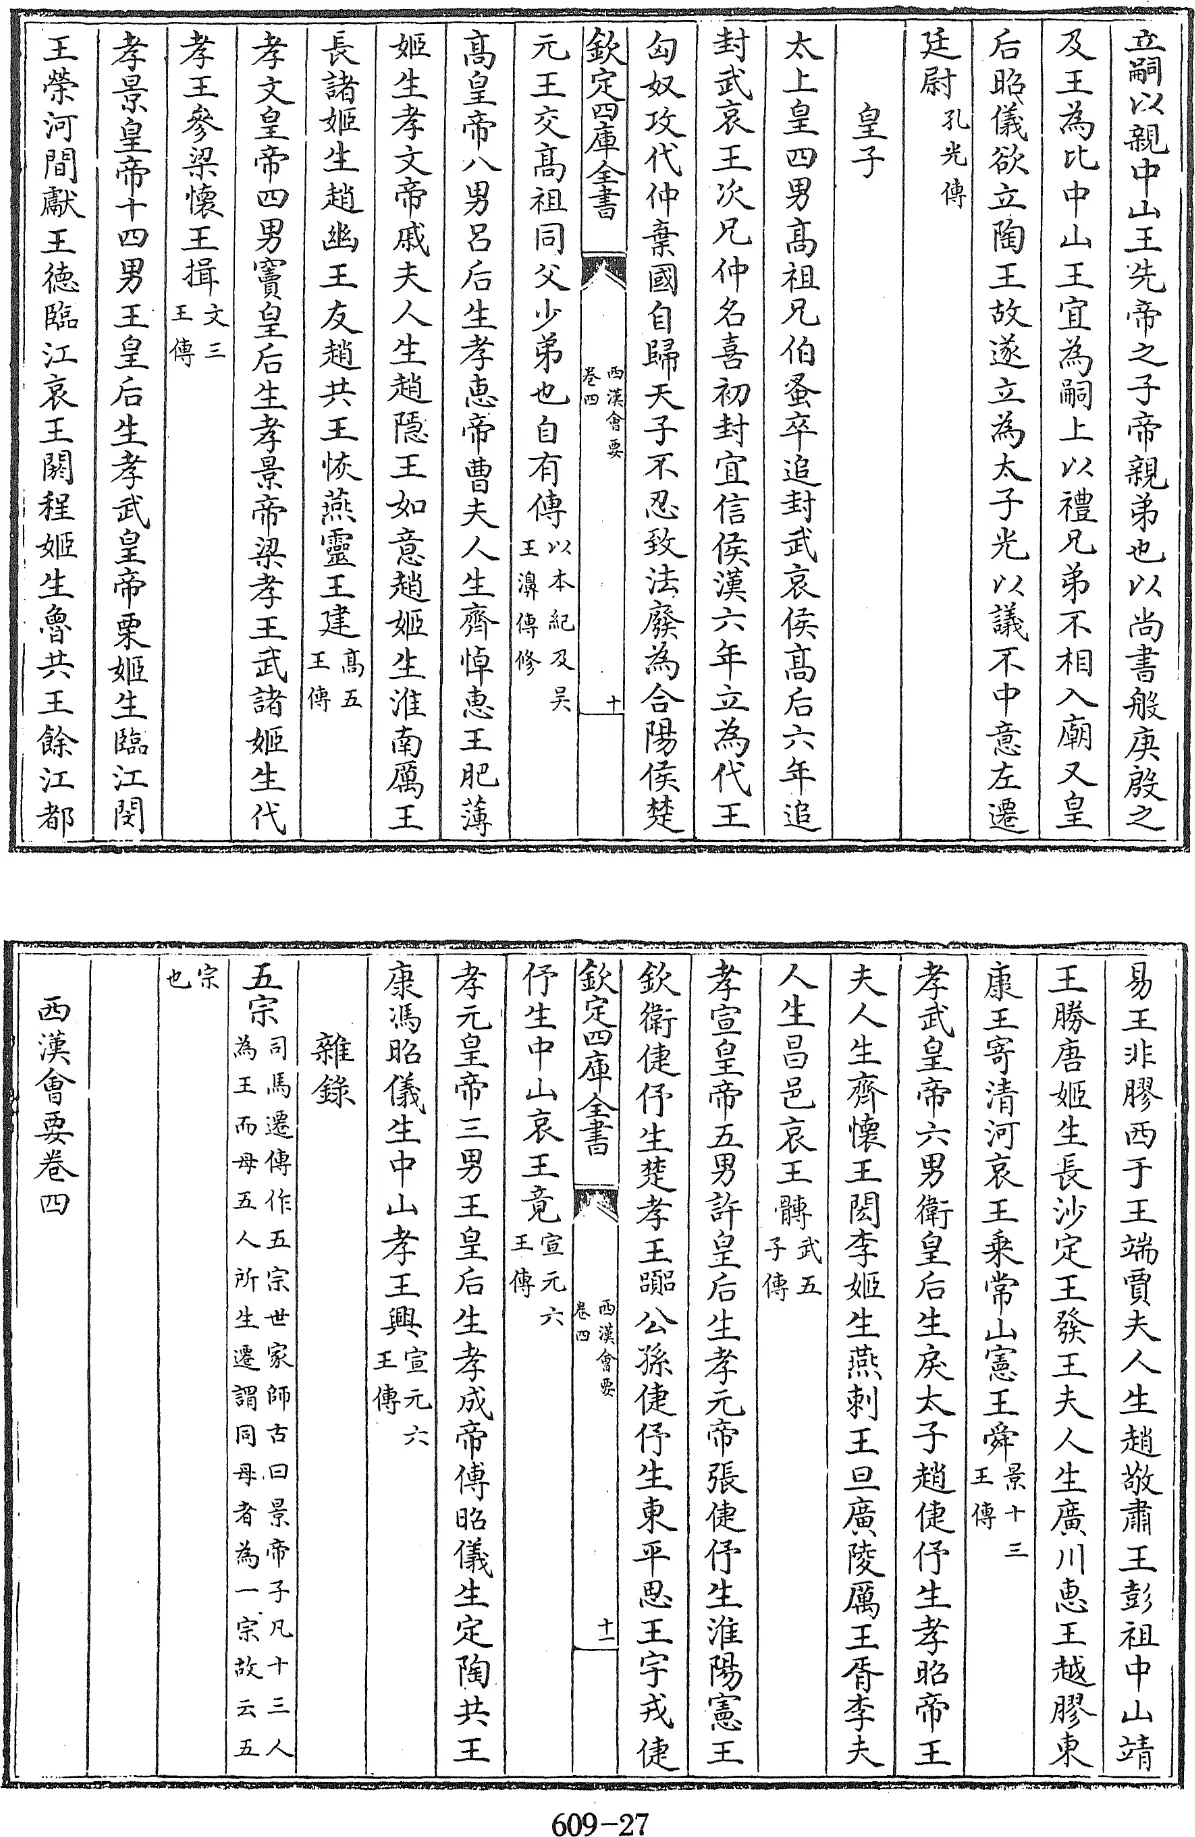 立嗣以親中山王先帝之子帝親弟也以尚書般庚殷之
及王為比中山王宜為嗣上以禮兄弟不相入廟又皇
后昭儀欲立陶王故遂立為太子光以議不中意左遷
廷尉孔光傳
皇子
太上皇四男高祖兄伯蚤卒追封武哀侯高后六年追
封武哀王次兄仲名喜初封宜信侯漢六年立為代王
匈奴攻代仲棄國自歸天子不忍致法廢為合陽侯楚
欽定四庫全書 西漢會要 卷四 十
元王交高祖同父少弟也自有傳以本紀及吴王濞傳修
高皇帝八男呂后生孝惠帝曹夫人生齊悼惠王肥薄
姬生孝文帝戚夫人生趙隱王如意趙姬生淮南厲王
長諸姬生趙幽王友趙共王恢燕靈王建高五王傳
孝文皇帝四男竇皇后生孝景帝梁孝王武諸姬生代
孝王參梁懷王揖文三王傳
孝景皇帝十四男王皇后生孝武皇帝栗姬生臨江閔
王榮河間獻王德臨江哀王閼程姬生魯共王餘江都
易王非膠西于王端賈夫人生趙敬肅王彭祖中山靖
王勝唐姬生長沙定王發王夫人生廣川惠王越膠東
康王寄清河哀王乘常山憲王舜景十三王傳
孝武皇帝六男衛皇后生戾太子趙倢伃生孝昭帝王
夫人生齊懷王閎李姬生燕剌王旦廣陵厲王胥李夫
人生昌邑哀王髆武五子傳
孝宣皇帝五男許皇后生孝元帝張倢伃生淮陽憲王
欽衛倢伃生楚孝王嚻公孫倢伃生東平思王宇戎倢
欽定四庫全書 西漢會要 卷四 十一
伃生中山哀王竟宣元六王傳
孝元皇帝三男王皇后生孝成帝傅昭儀生定陶共王
康馮昭儀生中山孝王興宣元六王傳
雜錄
五宗司馬遷傳作五宗世家師古曰景帝子凡十三人為王而母五人所生遷謂同母者為一宗故云五
宗也
西漢會要卷四
609-27